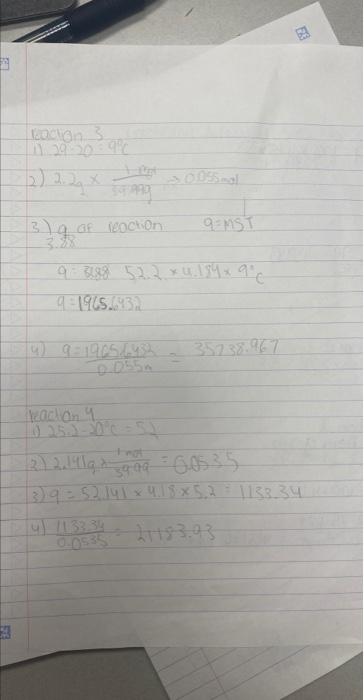 reaction 3
1) 29-20 = 9°C
2) 2.2g × 1 mol / 39.999g → 0.055mol
3.) q of reaction q=MST
3.88
q = 52.2 × 4.184 × 9°C
q = 1965.6432
4) q = 1965.6432 / 0.055m = 35738.967
reaction 4
1) 25.2-20°C = 5.2
2) 2.141g × 1 mol / 39.99 = 0.0535
3) q = 52.141 × 4.18 × 5.2 = 1133.34
4) 1133.34 / 0.0535 = 21183.93